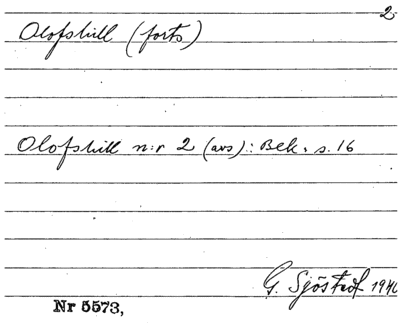 2.
Olofshill (forts)
Olofshill n:r 2 (avs): Bek. s. 16
G. Sjöstedt 1940
Nr 5573,